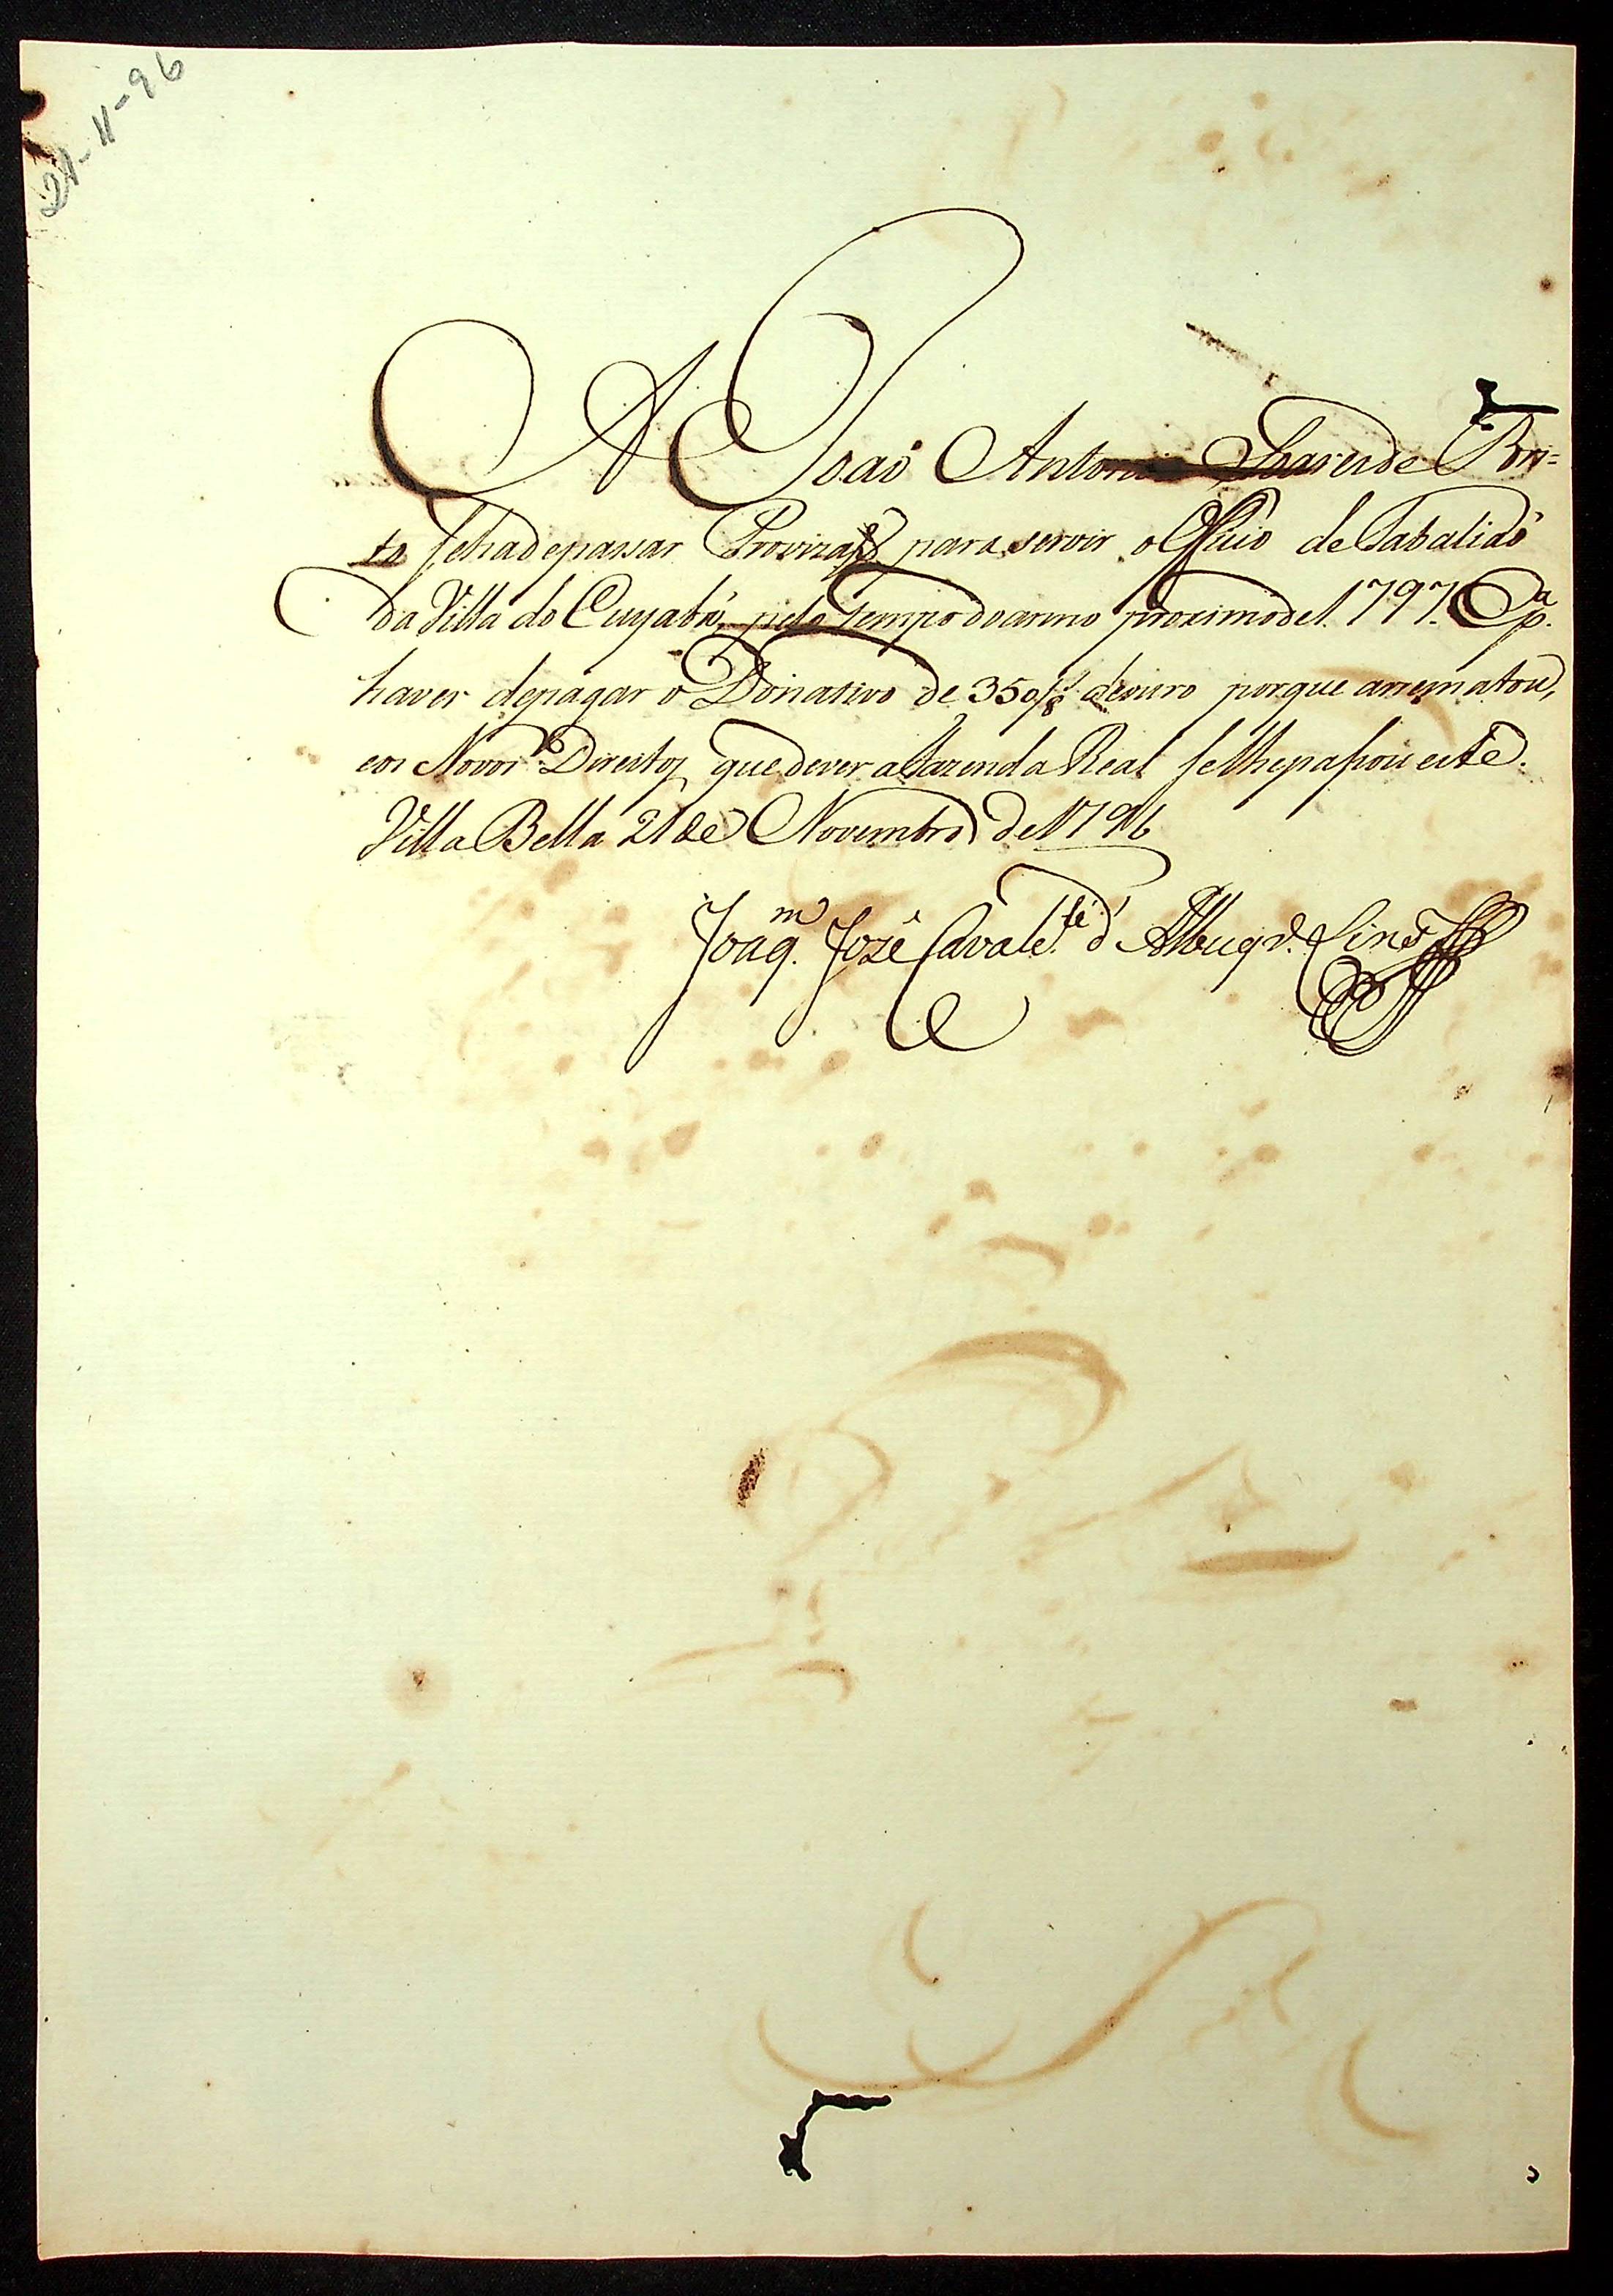 21-11-96
A João Antonio Soares de Por=
to se ha de passar Provizaõ para servir o Officio de Tabaliaõ
da Villa do Cuyabá, pelo tempo do anno proximo de 1797. E p.ª
haver de pagar o Donativo de 350/8.ª de ouro porque arrematou,
e os Novos Direitos, que dever a Fazenda Real se lhe passou este.
Villa Bella 21 de Novembro de 1796
Joaq.m José Cavalc.te d'Albuqr.e Lins